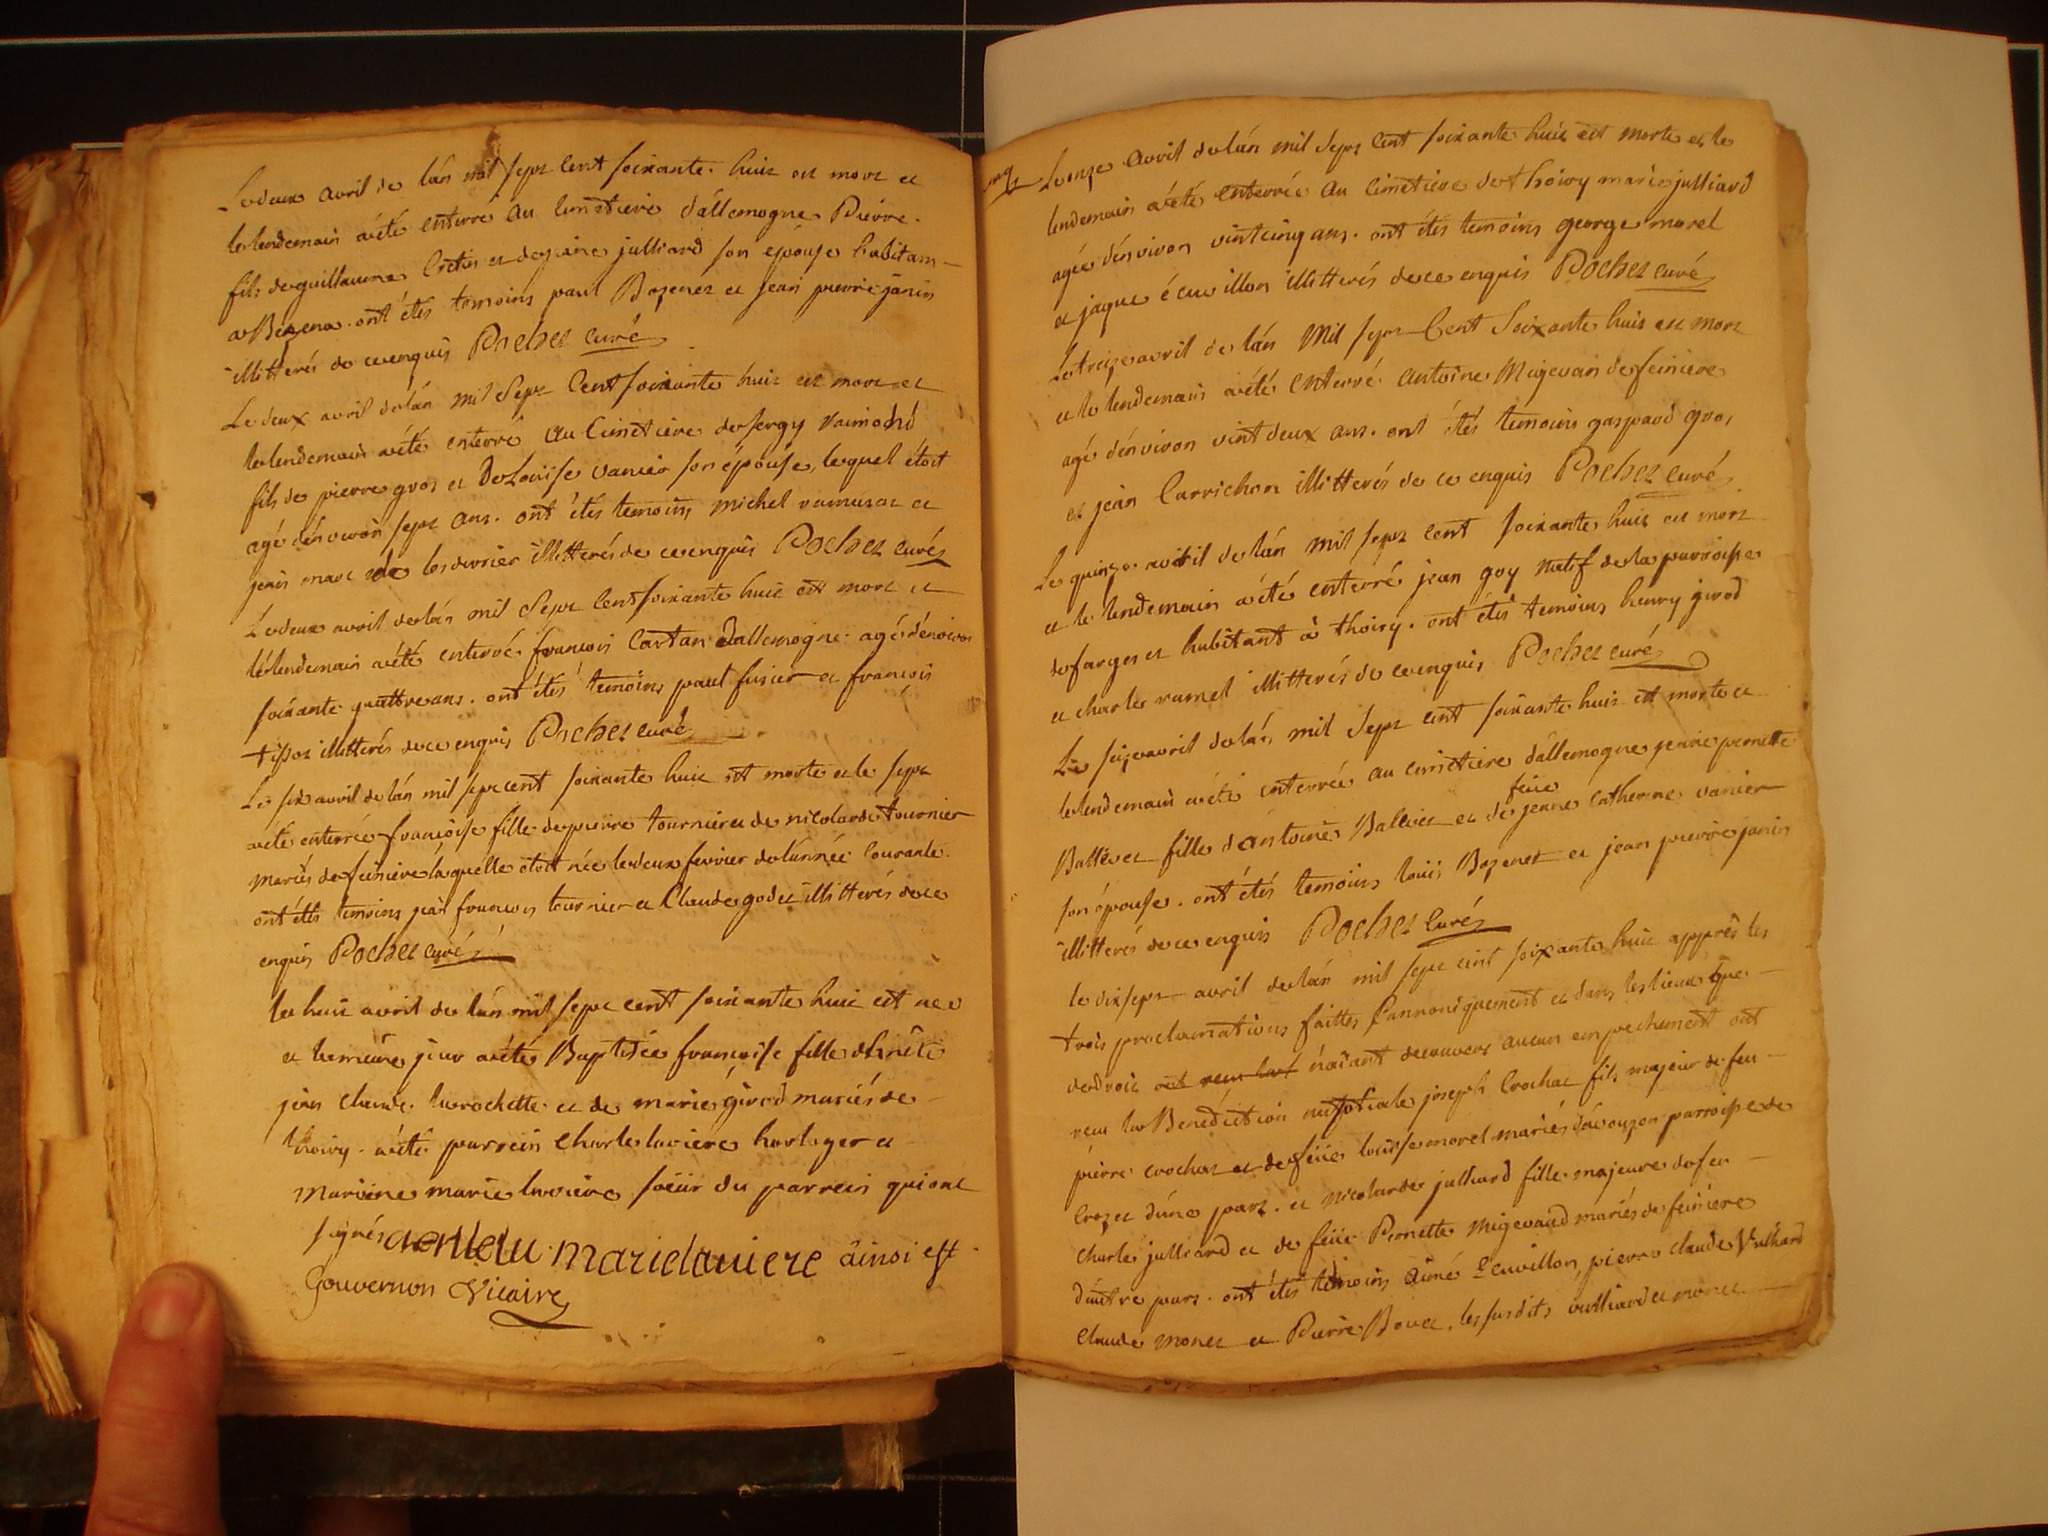 Le deux avril de lán mil sept cent soixante huit est mort et
le lendemain a été enterré au cimetiere d'allemogne Pierre
fils de guillaume Cretin et de janne julliard son épouse habitans
a ont étés temoins paul Bozenet et jean pierre janin
illitterés de ce enquis Pochet curé
Le deux avril de lán mil sept Cent soixante huit est mort et
le lendemain a été enterré au Cimetiere de sergy Raimond
fils de pierre gros et de Louise vanier son épouse, lequel étoit
agé dénviron sept ans. ont étés temoins michel ramusat et
jean marc illitterés de ce enquis Pochet curé
Le deux avril de lán mil sept Cent soixante huit est mort et
le lendemain a été enterré françois Cartan dallemogne agé dénviron
soixante quattre ans. ont étés temoins paul fusier et françois
tissot illitterés de ce enquis Pochet curé
Le six avril de lán mil sept cent soixante huit est morte et le sept
a été enterrée françoise fille de pierre tournier et de nicolarde tournier
mariés de feiniere laquelle étoit née le deux fevrier de lannée Courante
ont étés temoins françois tournier et Claude godet illitterés de ce
enquis Pochet curé
le huit avril de lán mil sept cent soixante huit est née
et le même jour a été Baptisée françoise fille
jean Claude larochette et de marie girod mariés de
thoiry. a été parrein Charle laviere horloger et
mareine marie laviere soeur du parrein qui ont
signés marie laviere áinsi est
Gouvernon Vicaire
Le onze avril de lán mil sept Cent soixante huit est morte et le
lendemain a été enterrée au cimetiere de thoiry marie julliard
agée dénviron vintcinq ans. ont étés temoins george morel
et jaque écuvillon illitterés de ce enquis Pochet curé
Le treize avril de lán mil sept Cent soixante huit est mort
et le lendemain a été enterré antoine Migevan de feiniere
agé dénviron vint deux ans. ont étés temoins gaspard gros
et jean Carrichon illitterés de ce enquis Pochet curé
Le quinze avril de lán mil sept cent soixante huit est mort
et le lendemain a été enterré jean goy natif de la parroisse
de farges et habitant à thoiry. ont étés temoins henry girod
et charle ramel illitterés de ce enquis Pochet curé
Le seize avril de lán mil sept cent soixante huit est morte et
le lendemain a été enterrée au cimetiere d'allemogne pernette
Ballivet fille d'antoine Ballivet et de feüe jeane Catherine vanier
son épouse. ont étés temoins loüis Bozenet et jean pierre janin
illitterés de ce enquis Pochet Curé
le dixsept avril de lán mil sept cent soixante huit apprès les
trois proclamations faittes Cannoniquement et dans les lieux que
de droit ont reçu la n'aiant decouvert aucun empechement ont
reçu la Benédiction nuptiale joseph Crochat fils majeur de feu
pierre crochat et de feüe loüise morel mariés d'avouzon parroisse de
Crozet d'une part. et nicolarde julliard fille majeure de feu
Charle julliard et de feüe Pernette migevand mariés de feiniere
d'autre part. ont étés temoins aimé Ecuvillon, pierre claude Vulliard
Claude monet et Pierre Bouet. les susdits vulliard et monet